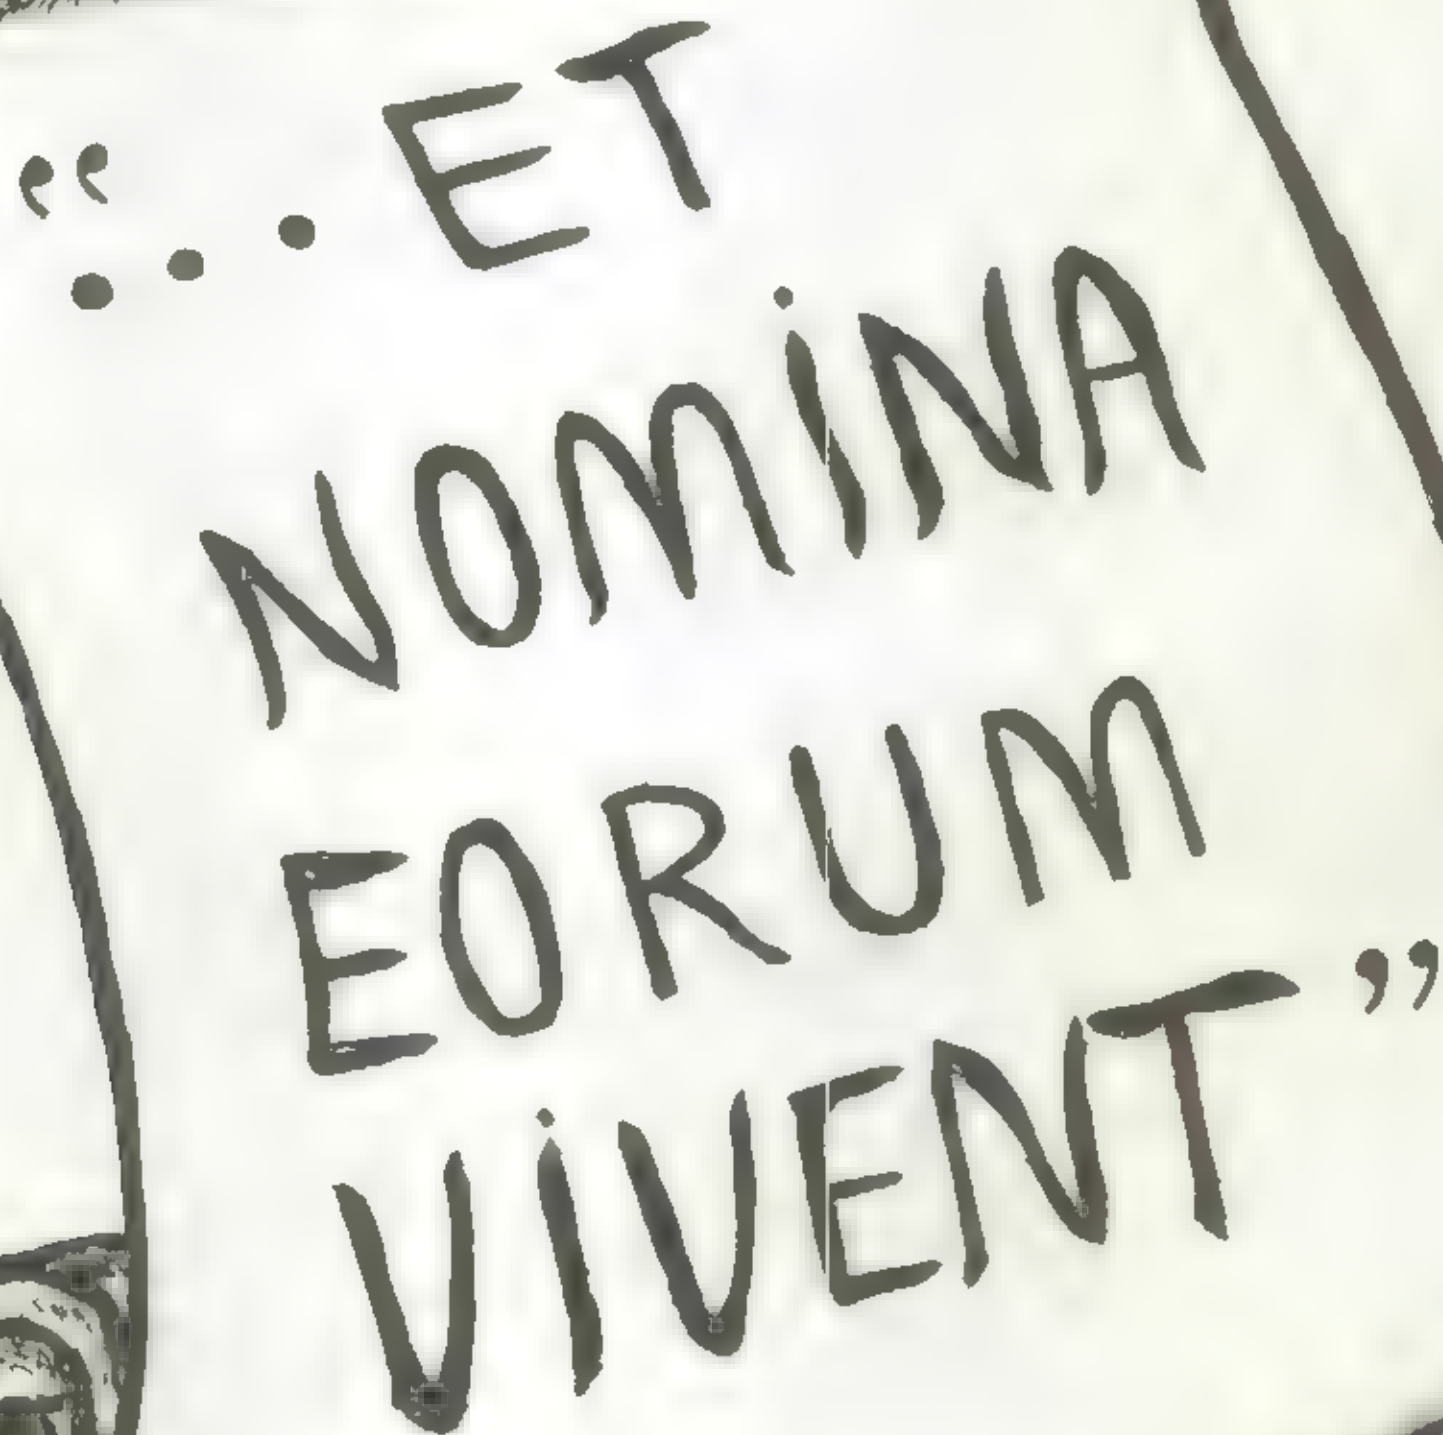 “... ET
NOMiNA
EORUM
ViVENT”